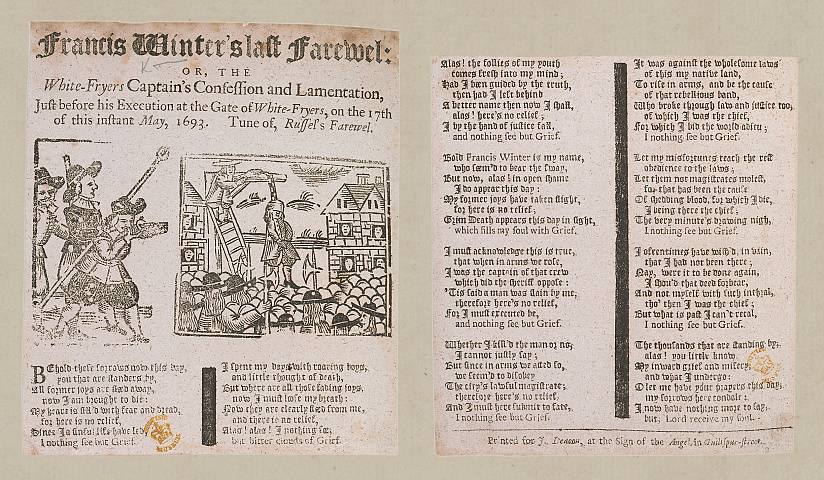 Francis Winter's last Farewel:
OR, THE
White-Fryers Captain's Confession and Lamentation,
Just before his Execution at the Gate of White-Fryers, on the 17th
of this instant May, 1693. Tune of, Russel's Farewel.
BEhold these sorrows now this day,
you that are standers by,
All former joys are fled away,
now I am brought to die:
My heart is fill'd with fear and dread,
for here is no relief,
Since I a sinful life have led,
I nothing see but Grief.
I spent my days with roaring boys,
and little thought of death,
But where are all those fading joys,
now I must lose my breath:
Now they are clearly fled from me,
and there is no relief,
Alas! alas! I nothing see,
but bitter clouds of Grief.
Alas! the follies of my youth
comes fresh into my mind;
Had I been guided by the truth,
then had I left behind
A better name then now I shall,
alas! here's no relief;
I by the hand of justice fall,
and nothing see but Grief.
Bold Francis Winter is my name,
who seem'd to bear the sway,
But now, alas! in open shame
I do appear this day:
My former joys have taken flight,
for here is no relief,
Grim Death appears this day in sight,
which fills my soul with Grief.
I must acknowledge this is true,
that when in arms we rose,
I was the captain of that crew
which did the sheriff oppose:
'Tis said a man was slain by me,
therefore here's no relief,
For I must executed be,
and nothing see but Grief.
Whether I kill'd the man or no,
I cannot justly say;
But since in arms we acted so,
we seem'd to disobey
The city's lawful magistrate;
therefore here's no relief,
And I must here submit to fate,
I nothing see but Grief.
It was against the wholesome laws
of this my native land,
To rise in arms, and be the cause
of that rebellious band,
Who broke through law and justice too,
of which I was the chief,
For which I bid the world adieu;
I nothing see but Grief.
Let my misfortunes teach the rest
obedience to the laws;
Let them not magistrates molest,
for that has been the cause
Of shedding blood, for which I die,
I being there the chief;
The very minute's drawing nigh,
I nothing see but Grief.
I oftentimes have wish'd, in vain,
that I had not been there;
Nay, were it to be done again,
I shou'd that deed forbear,
And not myself with such inthral,
tho' then I was the chief;
But what is past I can't recal,
I nothing see but Grief.
The thousands that are standing by,
alas! you little know
My inward grief and misery,
and what I undergo:
O let me have your prayers this day,
my sorrows here condole:
I now have nothing more to say,
but, Lord receive my soul.
Printed for J. Deacon, at the Sign of the Angel, in Guiltspur-street.